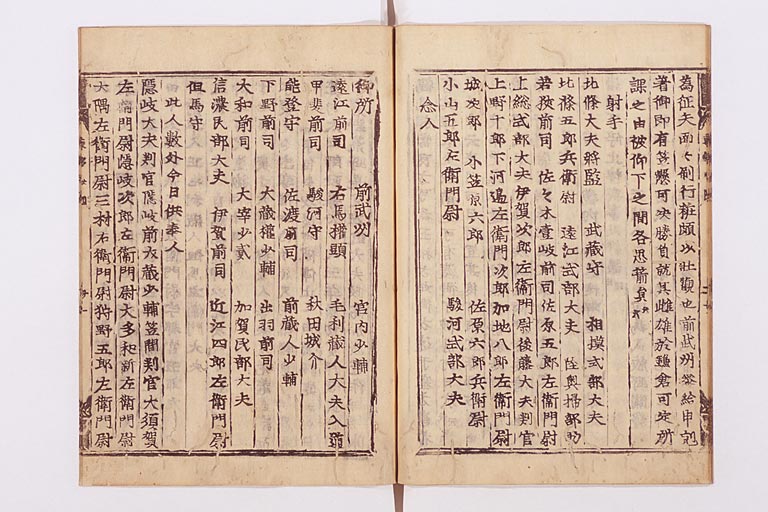 為征矢面々刷行粧頗以壮観也前武州盃給申剋
著御即有笠懸可決勝負就其雌雄於鎌倉可定所
課之由被仰下之間各思箭員云々
射手
北條大夫将監 武藏守 相摸式部大夫
北條五郎兵衛尉 遠江式部大夫 陸奥掃部助
若狭前司 佐々木壹岐前司佐原五郎左衛門尉
上総式部大夫伊賀次郎左衛門尉後藤大夫判官
上野十郎下河邊左衛門次郎加地八郎左衛門尉
城次郎 小笠原六郎 佐原六郎兵衛尉
小山五郎左衛門尉 駿河式部大夫
念人
御所 前武州 宮内少輔
遠江前司 右馬権頭 毛利藏人大夫入道
甲斐前司 駿河守 秋田城介
能登守 佐渡前司 前藏人少輔
下野前司 大藏權少輔 出羽前司
大和前司 大宰少貳 加賀民部大夫
信濃民部大夫 伊賀前司 近江四郎左衛門尉
但馬守
此人數外今日供奉人
隱岐大夫判官隱岐前大藏少輔笠間判官大須賀
左衛門尉隱岐次郎左衛門尉大多和新左衛門尉
大隅左衛門尉三村右衛門尉狩野五郎左衛門尉